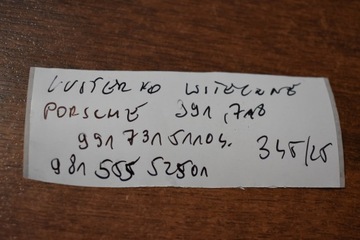 LUSTERKO WITECZNE
PORSCHE 991, 718
991 731 511 04. 345/25
981 555 525 01